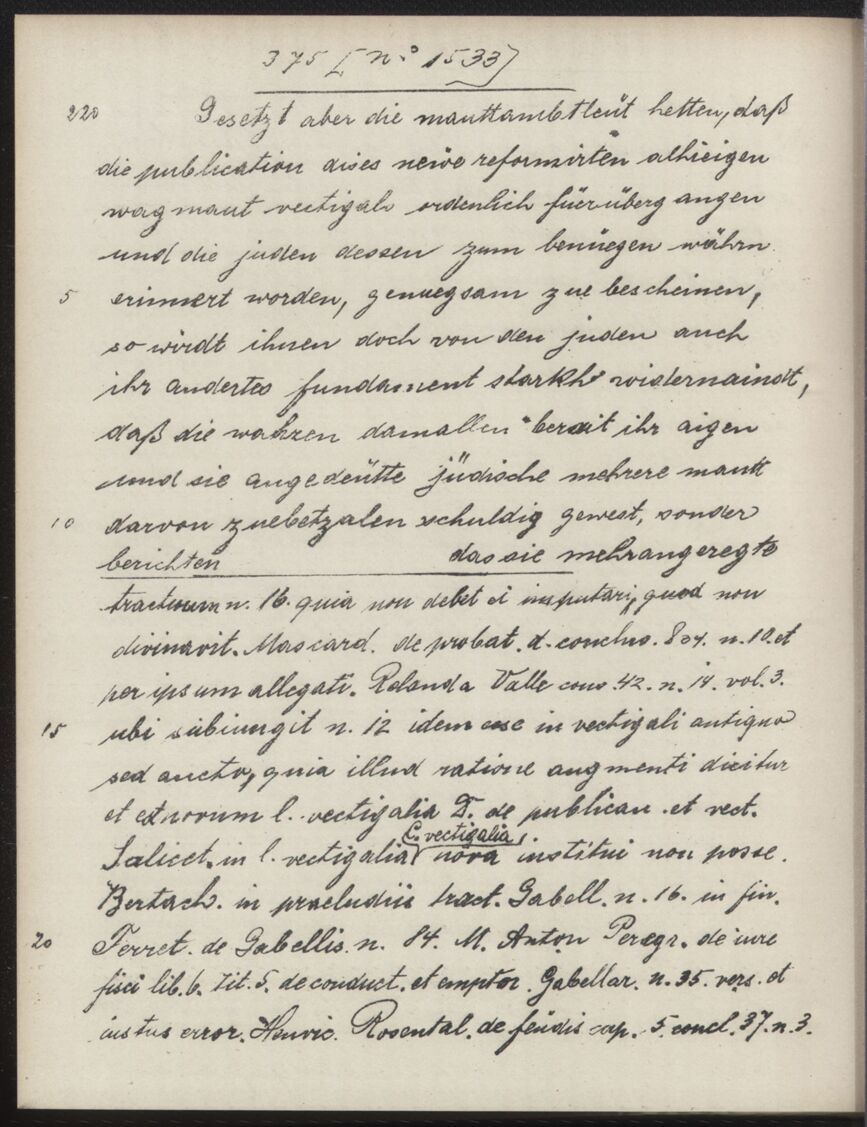 375 [n.° 1533]
220 Gesetzt aber die mauttambtleüt hetten, daß
die publication dises neüe reformirten alhieigen
wag maut vectigals ordenlich fürüberg angen
und die juden dessen zum benüegen währn
5 erinnert worden, genuegsam zue bescheinen,
so wirdt ihnen doch von den juden auch
ihr andertes fundament starkh widernaindt,
daß die wahren damallen berait ihr aigen
und sie angedeütte jüdische mehrere mautt
10 darvon zuebetzalen schuldig gewest, sonder
berichten das sie mehrangeregte
tractuum n. 16. quia non debet ei imputari, quod non
divinavit. Mascard. de probat. d. conclus. 804. n. 10. et
per ipsum allegati. Roland a Valle cons. 42. n. 14. vol. 3.
15 ubi subiungit n. 12 idem esse in vectigali antiquo
sed aucto, quia illud ratione augmenti dicitur
et est novum l. vectigalia D. de publican. et vect.
Salicet. in l. vectigalia C. vectigalia nova institui non posse.
Bertach. in praeludiis tract. Gabell. n. 16. in fin.
20 Ferret. de Gabellis n. 84. M. Anton Peregr. de iure
fisci lib. 6. tit. 5. de conduct. et emptor. Gabellar. n. 35. vers. et
iustus error. Henric. Rosental. de feüdis cap. 5. concl. 37. n. 3.